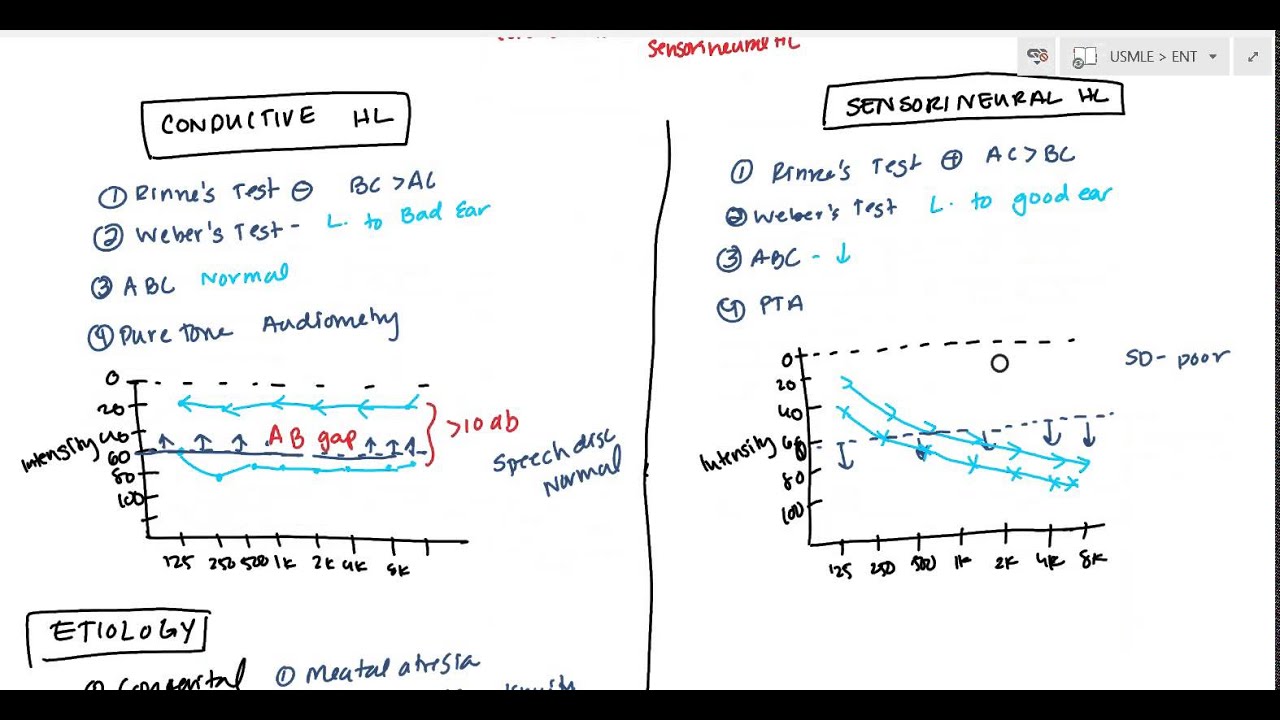 sensorineural HL
USMLE > ENT
CONDUCTIVE HL
① Rinne's Test ⊖ BC >AC
② Weber's Test - L. to Bad Ear
③ ABC Normal
④ Pure tone Audiometry
0
20
40
60
80
100
Intensity
AB gap
>10 db
Speech disc
Normal
125 250 500 1K 2K 4K 8K
SENSORINEURAL HL
① Rinne's Test ⊕ AC>BC
② Weber's Test L. to good ear
③ ABC - ↓
④ PTA
0
20
40
60
80
100
Intensity
SD- poor
125 250 500 1K 2K 4K 8K
ETIOLOGY
① Congenital ① Meatal atresia